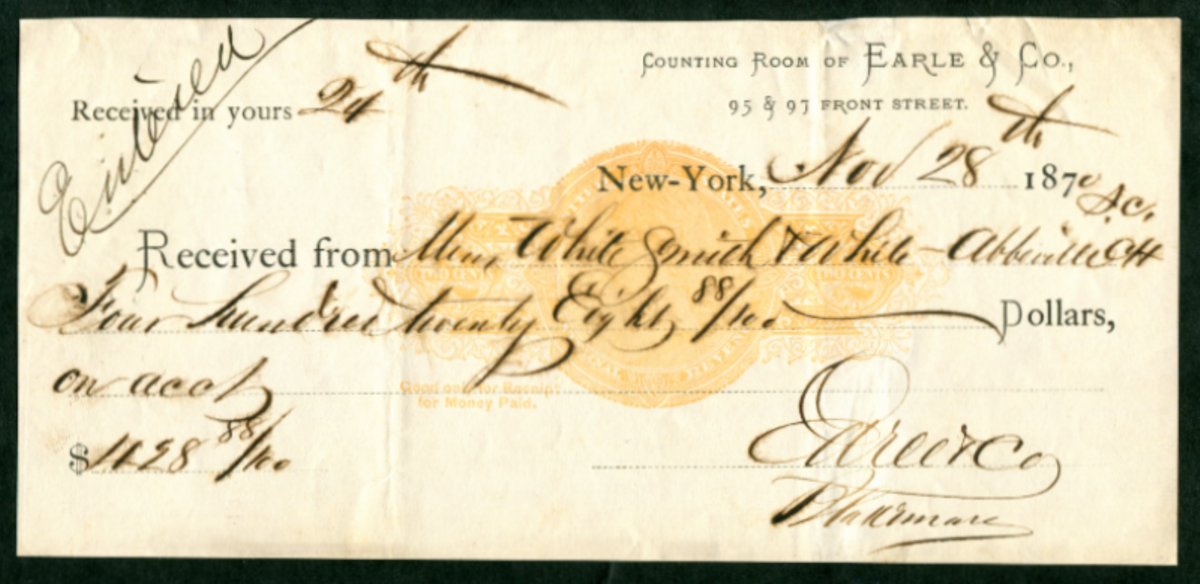 Entered
Received in yours 24th
COUNTING ROOM OF EARLE & CO.,
95 & 97 FRONT STREET.
New-York, Nov 28th 1870
Received from Mess White Smith & White - Abbeville CH S.C.
Four hundred twenty Eight 88/100 Dollars,
on acct
Good only for Receipt
for Money Paid.
$428 88/100
Earle & Co
TWO CENTS